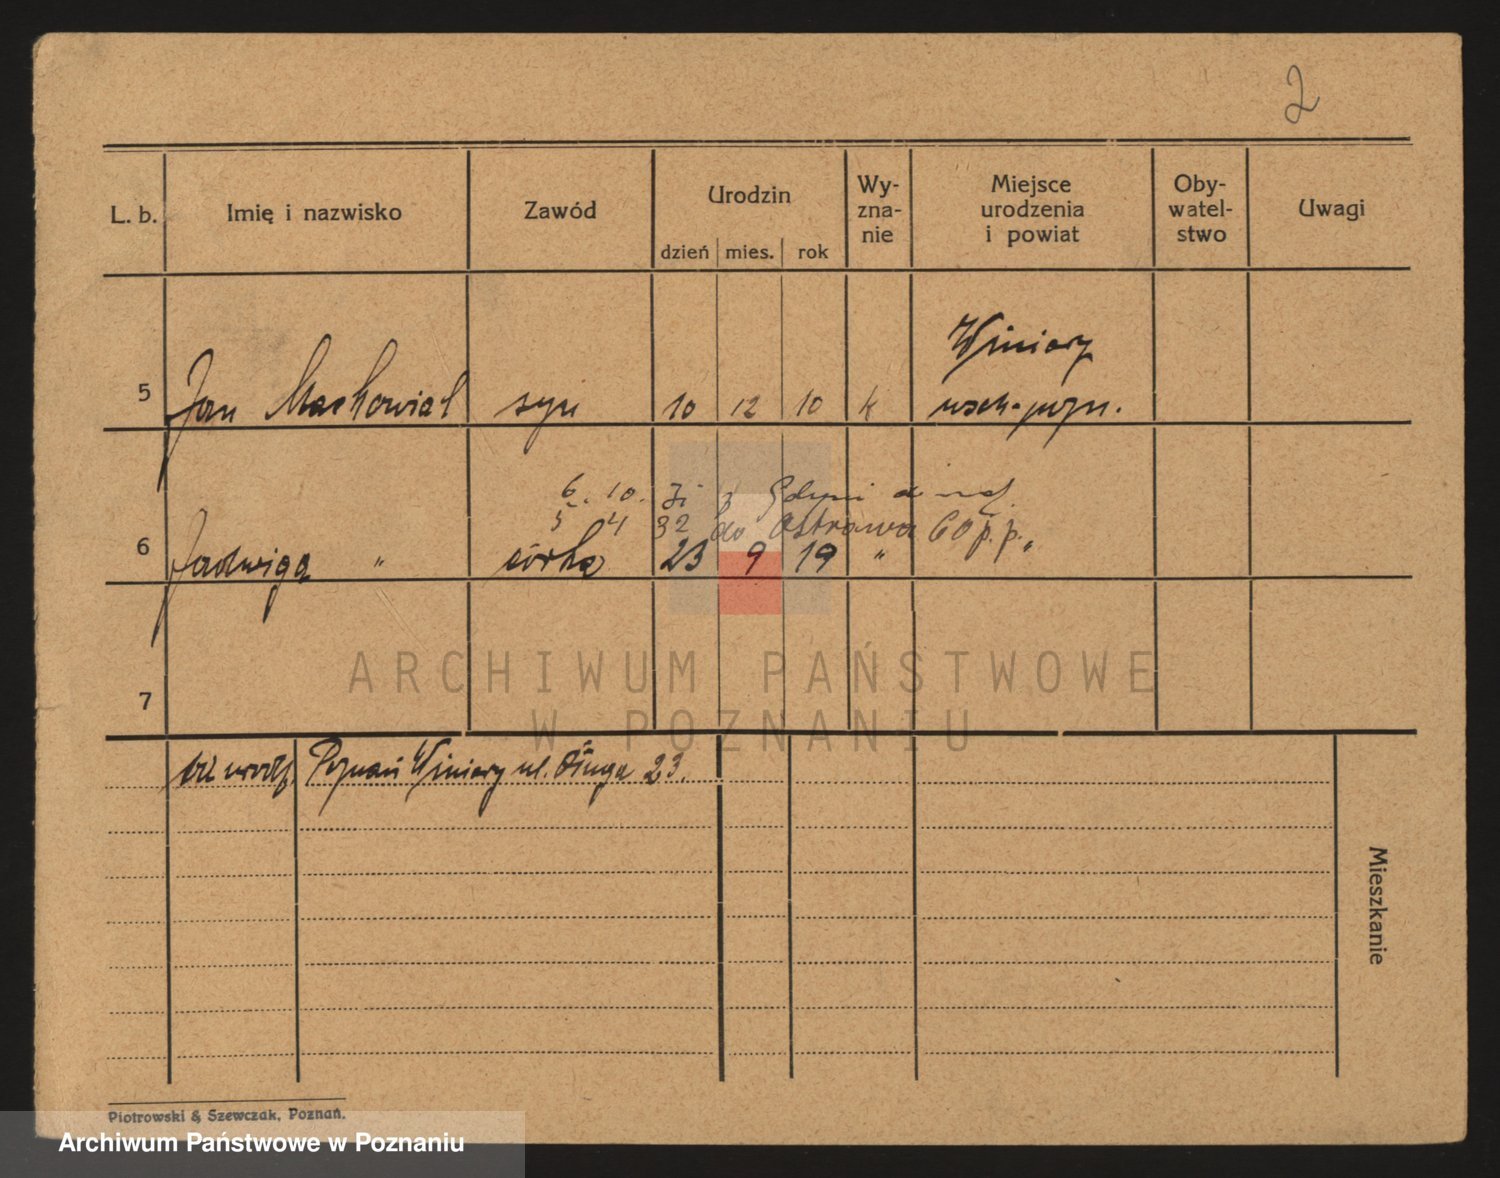 2
L. b. Imię i nazwisko Zawód Urodzin dzień mies. rok Wy-zna-nie Miejsce urodzenia i powiat Oby-watel-stwo Uwagi
Winiary
5 Jan Machowiak syn 10 12 10 k wsch.-pozn.
6. 10. 31 z Gdyni
5 4 32 do Ostrawa 60 p.p.
6 Jadwiga " córka 23 9 19 " "
7
ARCHIWUM PAŃSTWOWE
W POZNANIU
Poznań Winiary ul. Długa 23.
Mieszkanie
Piotrowski & Szewczak, Poznań.
Archiwum Państwowe w Poznaniu